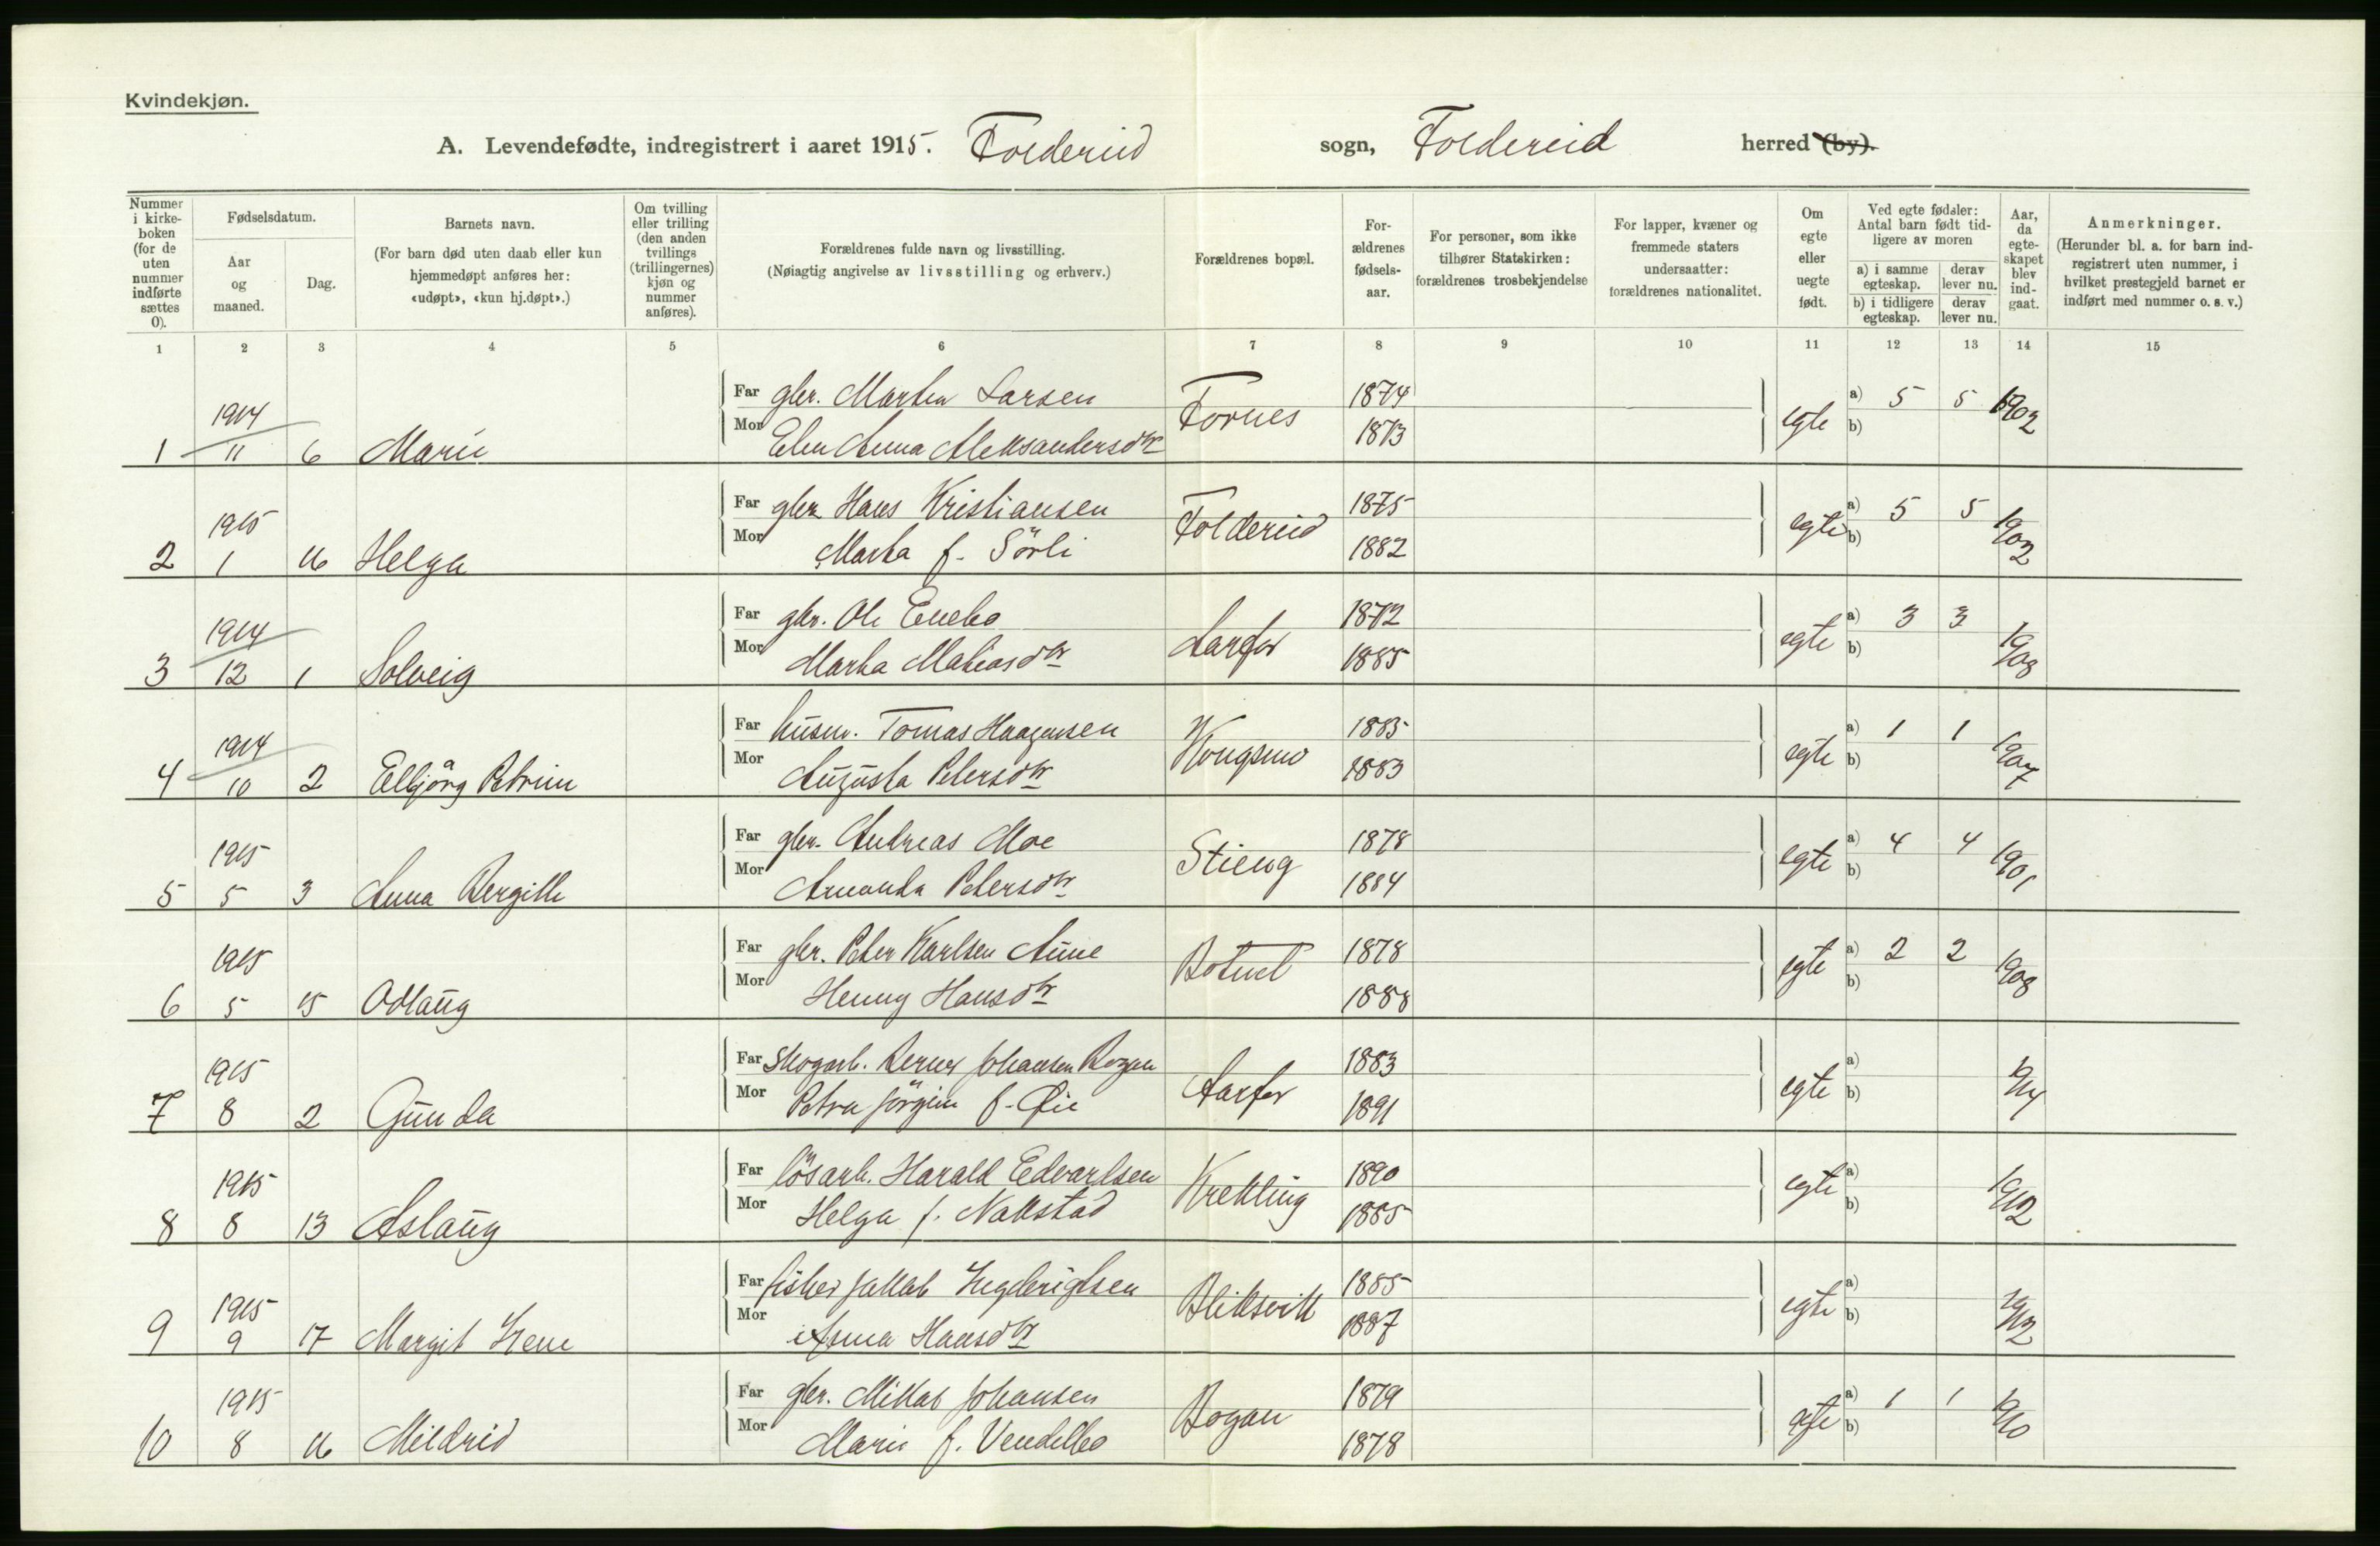 Kvindekjøn.
A. Levendefødte, indregistrert i aaret 1915. Foldereid sogn, Foldereid herred (by).
Nummer i kirkeboken (for de uten nummer indførte sættes 0).
Fødselsdatum.
Aar og maaned.
Dag.
Barnets navn.
(For barn død uten daab eller kun hjemmedøpt anføres her: «udøpt», «kun hj.døpt».)
Om tvilling eller trilling (den anden tvillings (trillingernes) kjøn og nummer anføres).
Forældrenes fulde navn og livsstilling.
(Nøiagtig angivelse av livsstilling og erhverv.)
Forældrenes bopæl.
Forældrenes fødselsaar.
For personer, som ikke tilhører Statskirken: forældrenes trosbekjendelse
For lapper, kvæner og fremmede staters undersaatter: forældrenes nationalitet.
Om egte eller uegte født.
Ved egte fødsler: Antal barn født tidligere av moren
a) i samme egteskap. derav lever nu.
b) i tidligere egteskap. derav lever nu.
Aar, da egteskapet blev indgaat.
Anmerkninger.
(Herunder bl. a. for barn indregistrert uten nummer, i hvilket prestegjeld barnet er indført med nummer o. s. v.)
1 2 3 4 5 6 7 8 9 10 11 12 13 14 15
1 1914 11 6 Marie Far gbr. Marten Larsen Fornes 1874 egte a) 5 5 1902
Mor Elen Anna Aleksandersdtr 1873 b)
2 1915 1 16 Helga Far gbr. Hans Kristiansen Foldereid 1875 egte a) 5 5 1902
Mor Marta f. Sörli 1882 b)
3 1914 12 1 Solveig Far gbr. Ole Enebo Aarfor 1872 egte a) 3 3 1908
Mor Marta Matiasdtr 1885 b)
4 1914 10 2 Elbjörg Petrine Far husm. Tomas Haagensen Kongsmo 1885 egte a) 1 1 1907
Mor Augusta Petersdtr 1883 b)
5 1915 5 3 Anna Bergitte Far gbr. Andreas Moe Stieng 1878 egte a) 4 4 1901
Mor Amanda Petersdtr 1884 b)
6 1915 5 15 Odlaug Far gbr. Peter Karlsen Aune Botnet 1878 egte a) 2 2 1908
Mor Henny Hansdtr 1888 b)
7 1915 8 2 Gunda Far skogarb. Berner Johansen Bogan Aarfor 1883 egte a) 1914
Mor Petra Jörgine f. Øie 1891 b)
8 1915 8 13 Aslaug Far lösarb. Harald Edvartsen Krekling 1890 egte a) 1912
Mor Helga f. Nakstad 1885 b)
9 1915 9 17 Margit Irene Far fisker Jakob Ingebrigtsen Bliksvik 1885 egte a) 1912
Mor Anna Hansdtr 1887 b)
10 1915 8 16 Mildrid Far gbr. Mikal Johansen Bogan 1879 egte a) 1 1 1910
Mor Marie f. Vendelbo 1878 b)